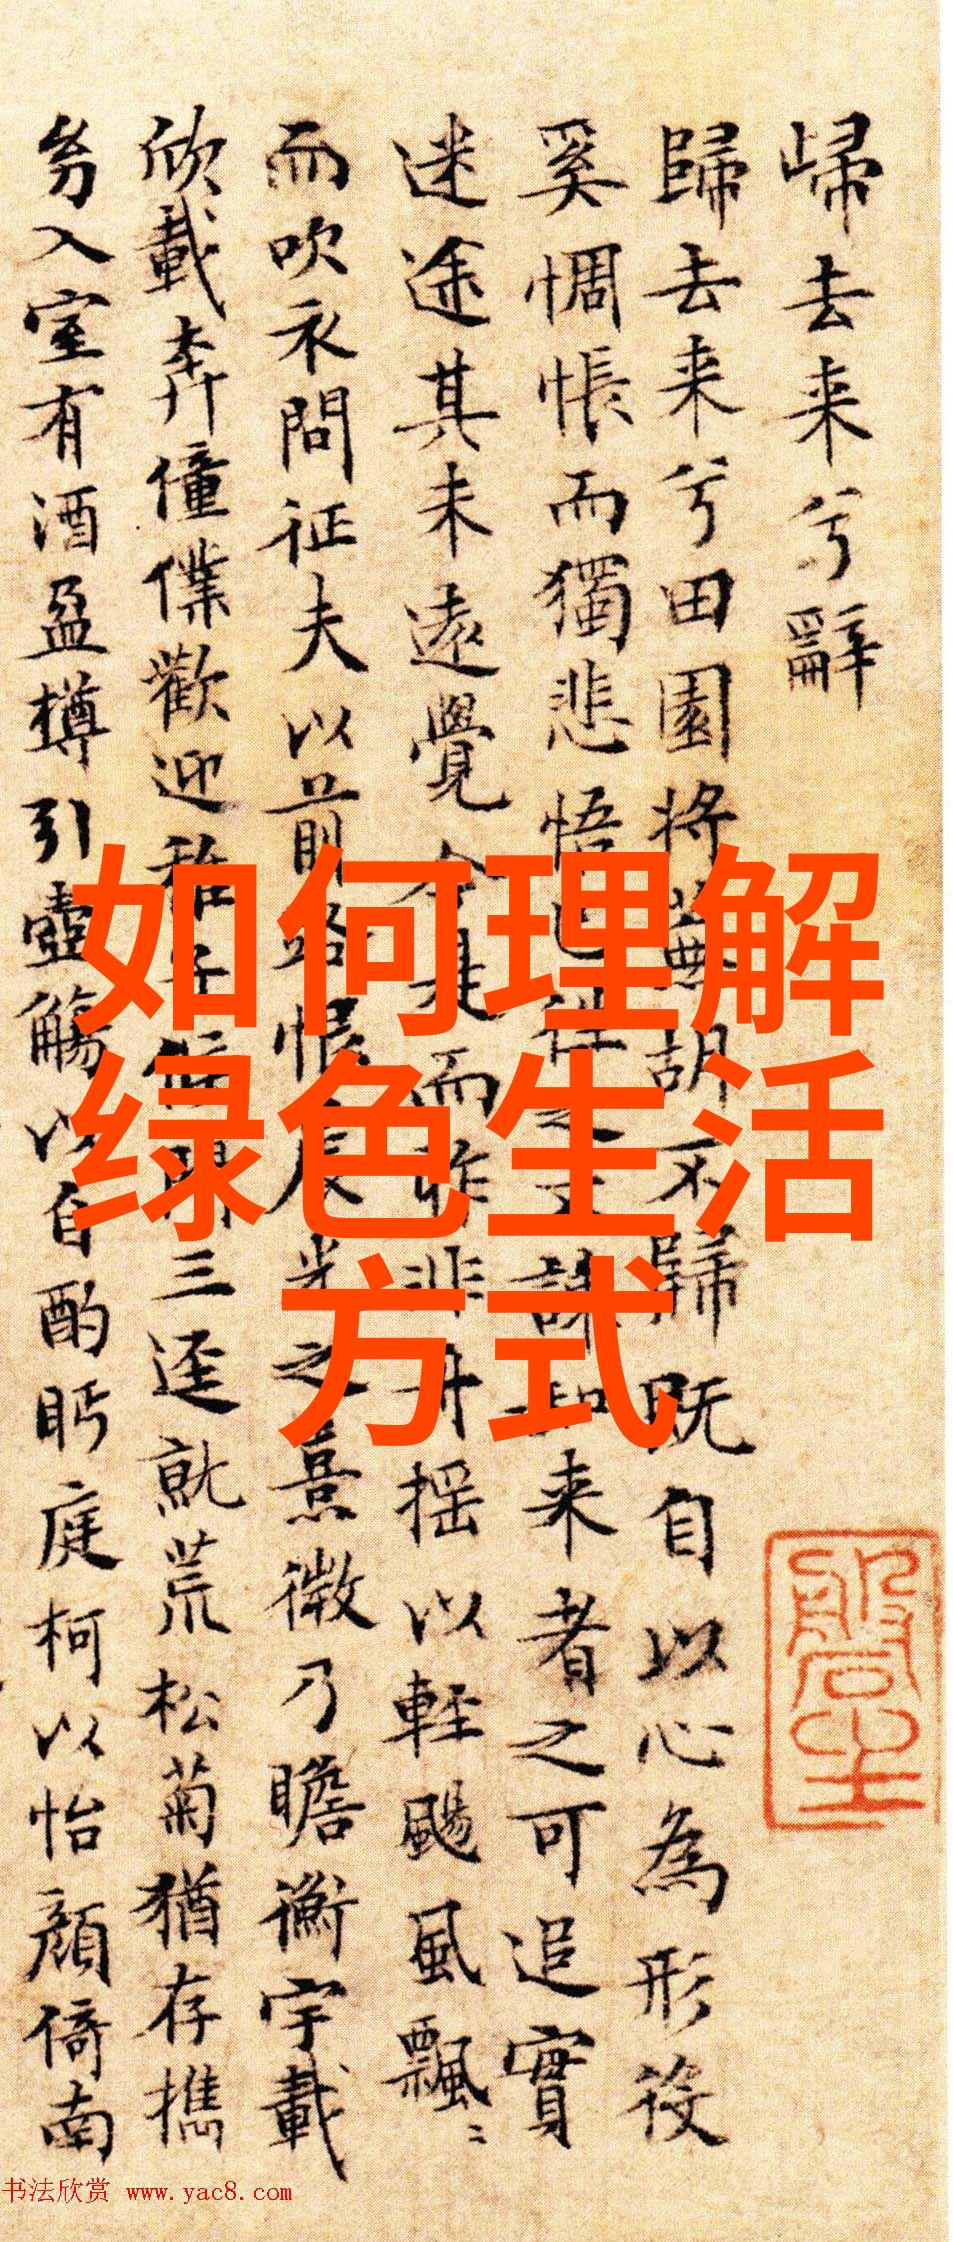 歸去来兮辭
歸去来兮田園将蕪胡不歸既自以心為形役
奚惆悵而獨悲悟已往之不諫知来者之可追實
迷途其未遠覺今是而昨非舟揺以輕颺風飄〻
而吹衣問征夫以前路恨晨光之熹微乃瞻衡宇載
欣載奔僮僕歡迎稚子候門三逕就荒松菊猶存携
㓜入室有酒盈樽引壺觴以自酌眄庭柯以怡顔倚南
如何理解
绿色生活
方式
书法欣赏 www.yac8.com